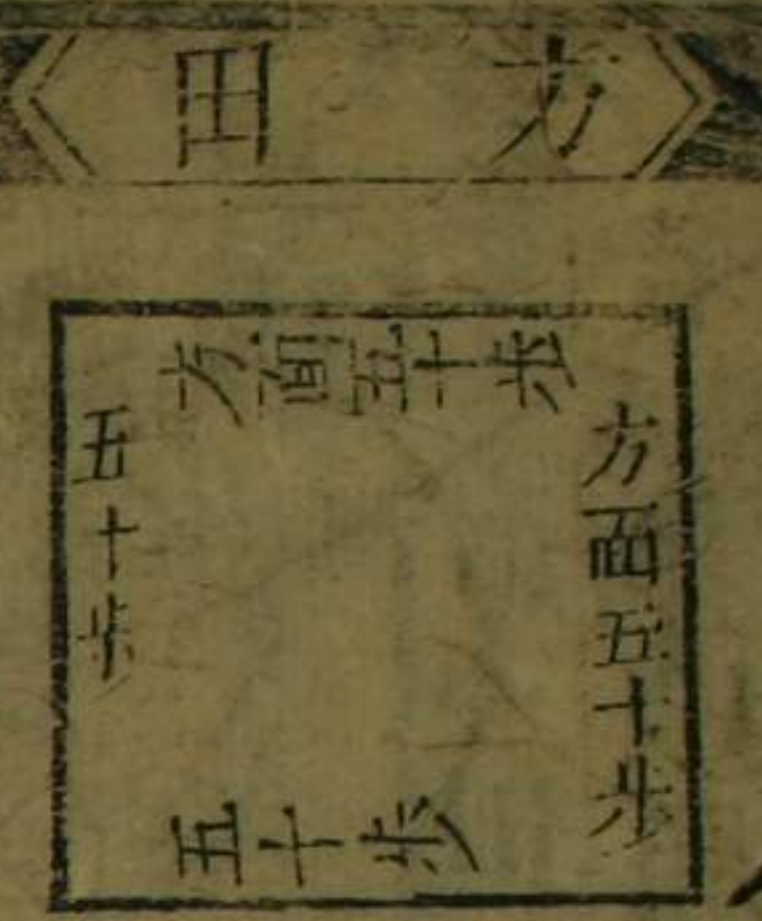 方田
方面五十步
方面五十步
五十步
五十步